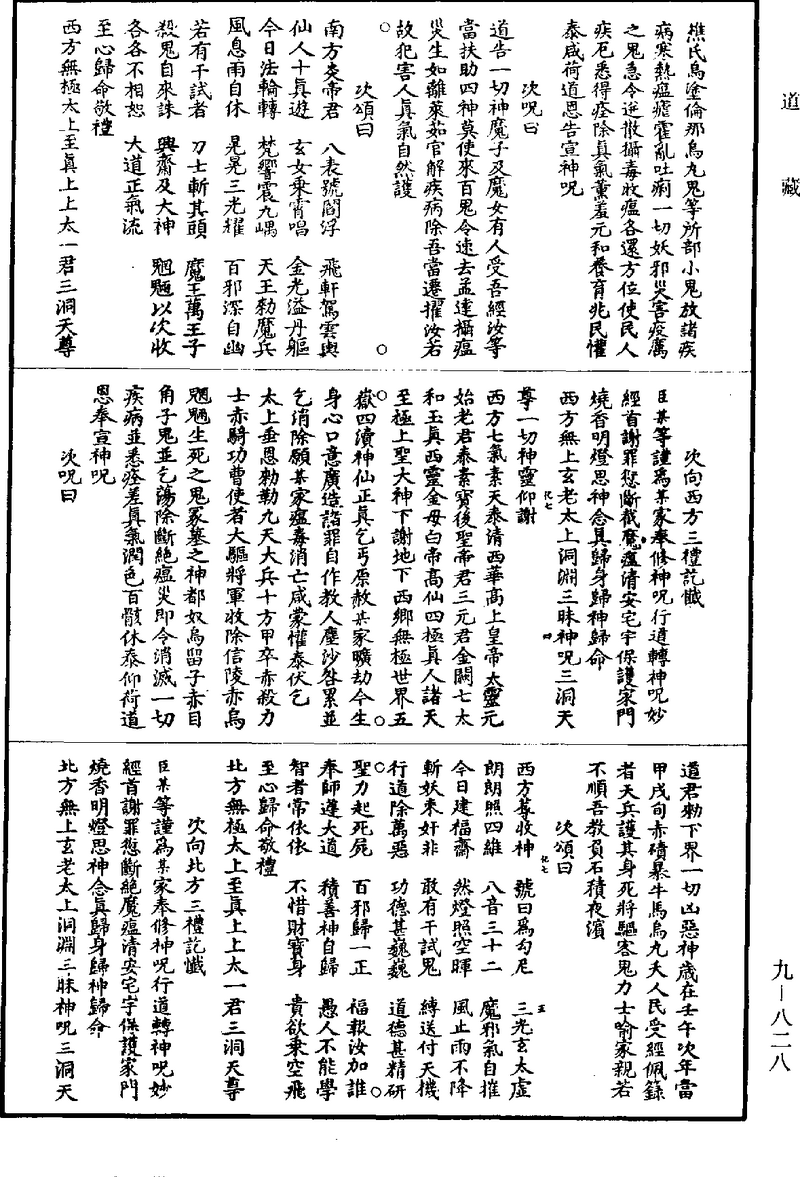 道藏
樵氏烏塗倫那烏九鬼等所部小鬼放諸疾
病寒熱瘟瘧霍亂吐痢一切妖邪災害疫癘
之鬼急令迸散攝毒收瘟各還方位使民人
疾厄悉得痊除真氣薰羞元和養育兆民懽
泰咸荷道恩告宣神呪
次呪曰
道告一切神魔子及魔女有人受吾經汝等
當扶助四種莫使來百鬼令速去孟達攝瘟
災生如離萊茹官解疾病除吾當遷擢汝若
故犯害人真氣自然護
次頌曰
南方炎帝君　八表號閻浮　飛軒駕雲輿
仙人十真遊　玄女乘霄唱　金光溢丹軀
今日法輪轉　梵響震九嵎　天王勑魔兵
風息雨自休　晃晃三光耀　百邪深自幽
若有干試者　刀士斬其頭　魔王萬王子
殺鬼自來誅　興齋及大神　魍魎以次收
各各不相恕　大道正氣流
至心歸命敬禮
西方無極太上至真上上太一君三洞天尊
次向西方三禮訖懺
臣某等謹為某家奉修神呪行道轉神呪妙
經首謝罪愆斷截魔瘟清安宅宇保護家門
燒香明燈思神念真歸身歸神歸命
西方無上玄老太上洞淵三昧神呪三洞天
尊一切神靈仰謝
西方七氣素天泰清西華高上皇帝太靈元
始老君泰素寶後聖帝君三元君金闕七太
和玉真西靈金母白帝高仙四極真人諸天
至極上聖大神下謝地下西鄉無極世界五
嶽四瀆神仙正真乞丐原赦某家曠劫今生
身心口意廣造諸罪自作教人塵沙咎累並
乞消除願某家瘟毒消亡咸蒙懽泰伏乞
太上垂恩勑勒九天大兵十方甲卒赤殺力
士赤騎功曹使者大驅將軍收除信陵赤烏
魍魎生死之鬼冢墓之神都奴烏留子赤目
角子鬼並乞蕩除斷絕瘟災即令消滅一切
疾病並悉痊差真氣潤色百骸休泰仰荷道
恩奉宣神呪
次呪曰
道君勑下界一切凶惡神歲在壬午次年當
甲戌旬赤磧暴牛馬烏九夭人民受經佩籙
者天兵護其身死將驅客鬼力士喻家親若
不順吾教負石積夜濱
次頌曰
西方尊收神　號曰為勾尼　三光玄太虛
朗朗照四維　八音三十二　魔邪氣自摧
今日建福齋　然燈照空暉　風止雨不降
斬妖來奸非　敢有干試鬼　縛送付天機
行道除萬惡　功德甚巍巍　道德甚精研
聖力起死屍　百邪歸一正　福報汝加誰
奉師遵大道　積善神自歸　愚人不能學
智者常依依　不惜財寶身　貴欲乘空飛
至心歸命敬禮
北方無極太上至真上上太一君三洞天尊
次向北方三禮訖懺
臣某等謹為某家奉修神呪行道轉神呪妙
經首謝罪愆斷絕魔瘟清安宅宇保護家門
燒香明燈思神念真歸身歸神歸命
北方無上玄老太上洞淵三昧神呪三洞天
九—八二八